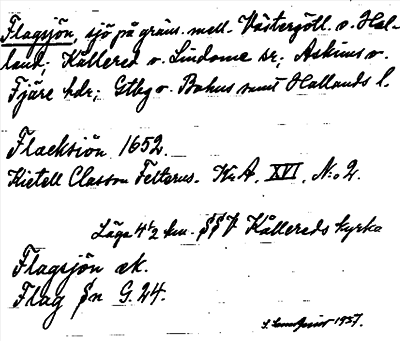 Flagsjön, sjö på gräns. mell. Västergötl. o. Hal-
land; Kållered o. Lindome sr; Askims o.
Fjäre hdr; Gtbg o. Bohus samt Hallands l.
Flacksiön 1652.
Kietell Classon Felterus. Kr.A. XVI. N:o 2.
Läge 4 1/2 km. SSV Kållereds kyrka
Flagsjön ek.
Flag §n G.24.
1937.